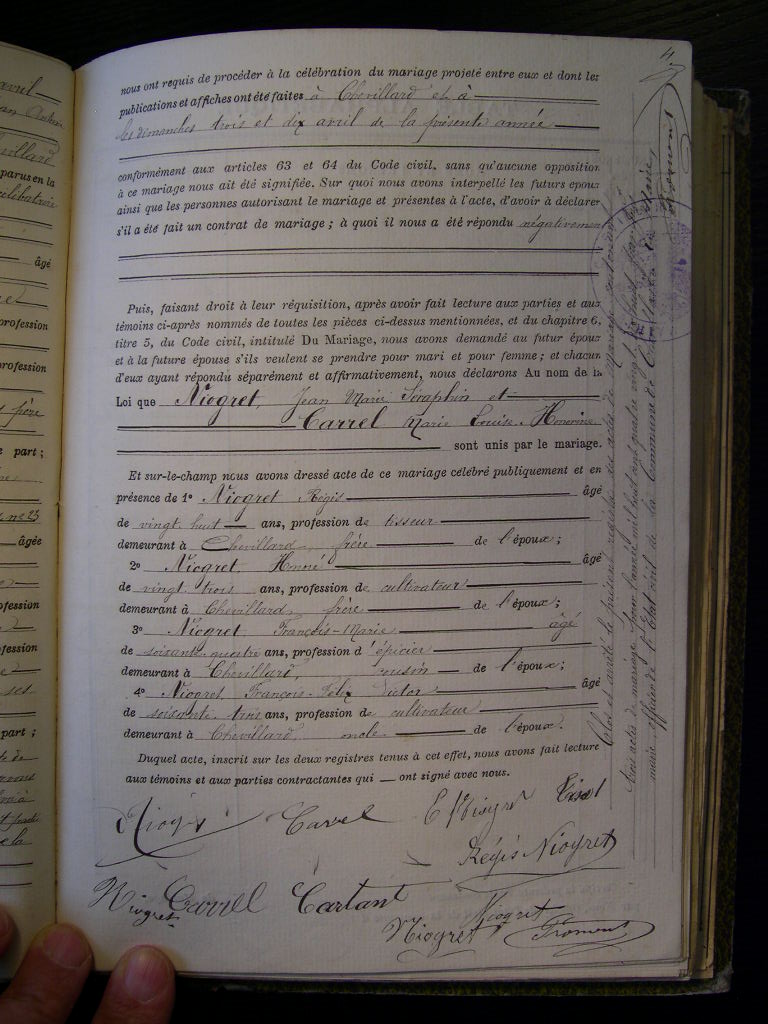 nous ont requis de procéder à la célébration du mariage projeté entre eux et dont les
publications et affiches ont été faites à Chevillard et à
les dimanches trois et dix avril de la présente année
conformément aux articles 63 et 64 du Code civil, sans qu'aucune opposition
à ce mariage nous ait été signifiée. Sur quoi nous avons interpellé les futurs époux
ainsi que les personnes autorisant le mariage et présentes à l'acte, d'avoir à déclarer
s'il a été fait un contrat de mariage ; à quoi il nous a été répondu négativemen
Puis, faisant droit à leur réquisition, après avoir fait lecture aux parties et aux
témoins ci-après nommés de toutes les pièces ci-dessus mentionnées, et du chapitre 6,
titre 5, du Code civil, intitulé Du Mariage, nous avons demandé au futur époux
et à la future épouse s'ils veulent se prendre pour mari et pour femme ; et chacun
d'eux ayant répondu séparément et affirmativement, nous déclarons Au nom de la
Loi que Niogret, Jean Marie Séraphin et
Carrel Marie Louise Honorine
sont unis par le mariage.
Et sur-le-champ nous avons dressé acte de ce mariage célébré publiquement et en
présence de 1° Niogret Régis âgé
de vingt huit ans, profession de tisseur
demeurant à Chevillard, frère de l'époux ;
2° Niogret, Honoré âgé
de vingt trois ans, profession de cultivateur
demeurant à Chevillard, frère de l'époux ;
3° Niogret François-Marie âgé
de soixante-quatre ans, profession d'épicier
demeurant à Chevillard, cousin de l'époux ;
4° Niogret François-Félix Victor âgé
de soixante-trois ans, profession de cultivateur
demeurant à Chevillard, oncle de l'époux.
Duquel acte, inscrit sur les deux registres tenus à cet effet, nous avons fait lecture
aux témoins et aux parties contractantes qui ont signé avec nous.
Carrel
Régis Niogret
Niogret Carrel Cartant
Niogret Niogret Froment
Clos et arrêté le présent registre des actes de Mariage
trois actes de mariage, pour l'année mil huit cent quatre vingt
maire officier de l'Etat civil de la Commune de Chevillard
Froment